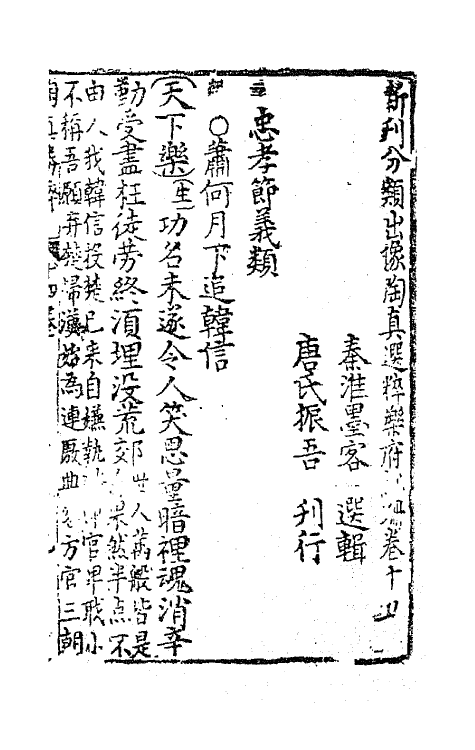 新刊分類出像陶真選粹樂府紅珊卷十四
秦淮墨客 選輯
唐氏振吾 刊行
忠孝節義類
○蕭何月下追韓信
天下樂生功名未遂令人笑思量暗裡魂消辛
勤受盡枉徒勞終須埋没荒郊
世人萬般皆是
果然半点不
由人我韓信投楚已來自嫌執 官卑職小
不稱吾願弃楚歸漢 為連廒典 官三朝